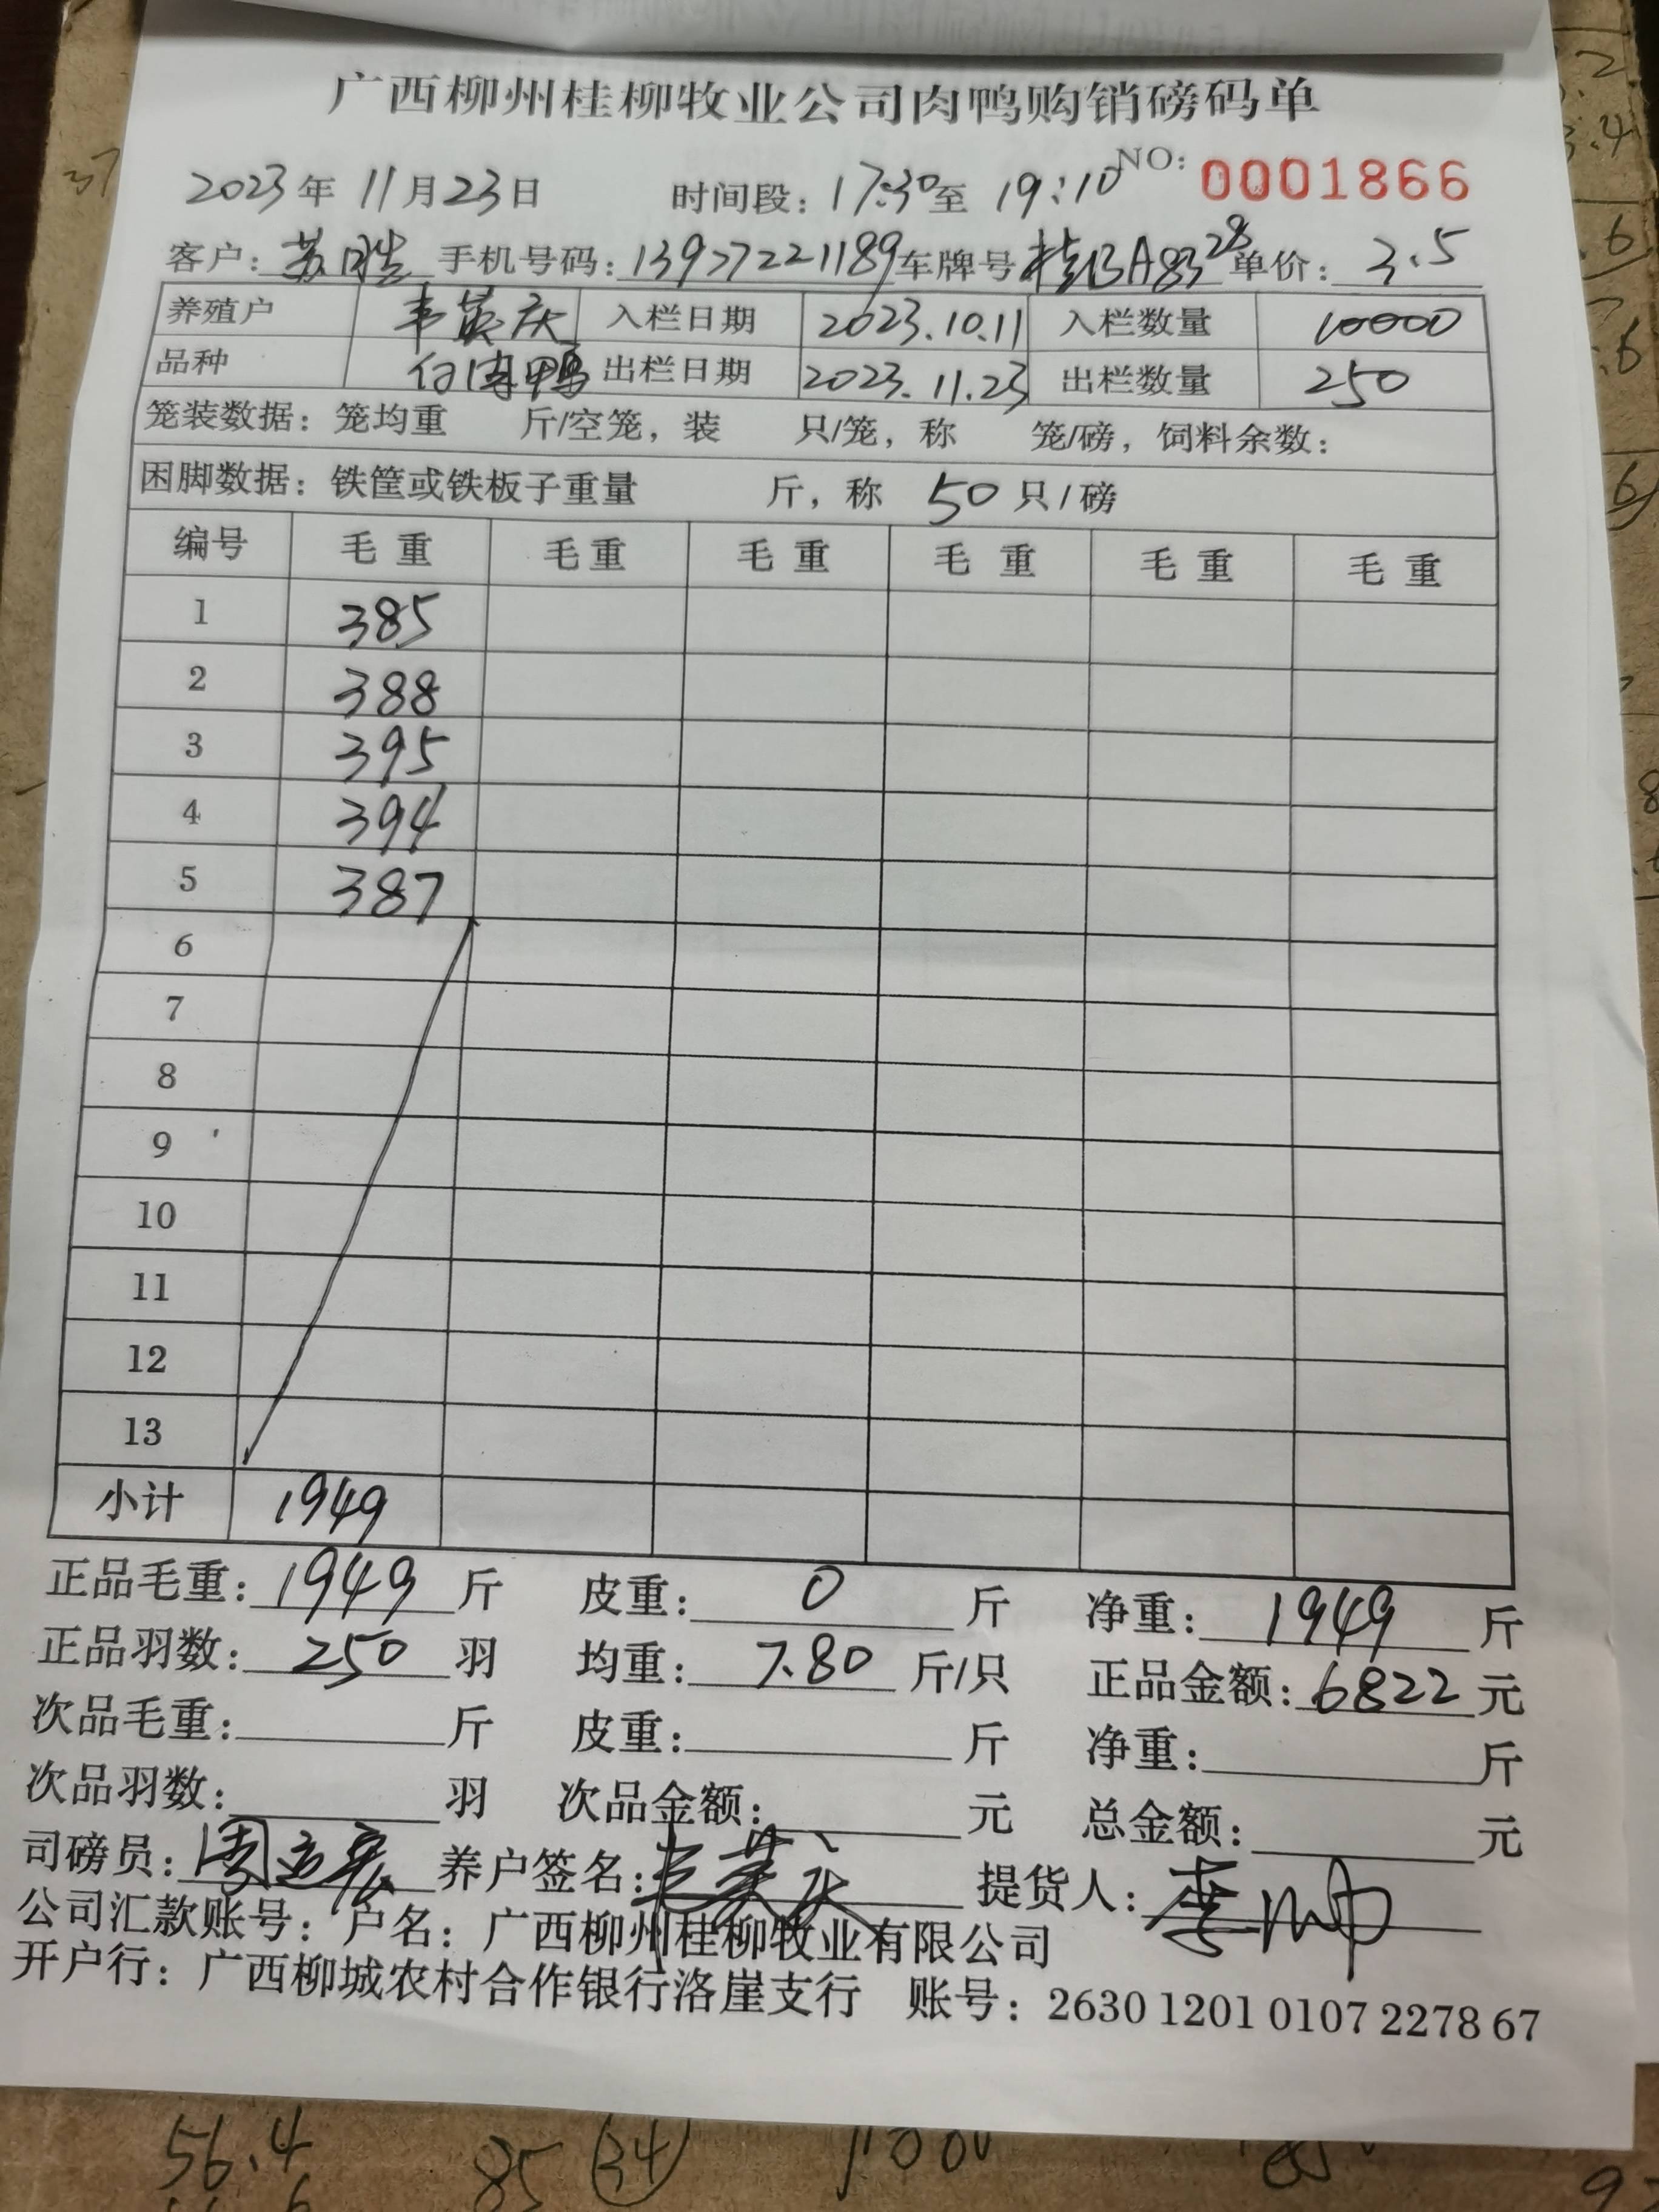 广西柳州桂柳牧业公司肉鸭购销磅码单
NO: 0001866
2023年11月23日 时间段: 17:30至 19:10
客户: 苏 手机号码: 13977221189 车牌号 桂BA8328 单价: 3.5
养殖户 韦英庆 入栏日期 2023.10.11 入栏数量 10000
品种 白 鸭 出栏日期 2023.11.23 出栏数量 250
笼装数据: 笼均重 斤/空笼, 装 只/笼, 称 笼/磅, 饲料余数:
困脚数据: 铁筐或铁板子重量 斤, 称 50 只/磅
编号 毛重 毛重 毛重 毛重 毛重 毛重
1 385
2 388
3 395
4 394
5 387
6
7
8
9
10
11
12
13
小计 1949
正品毛重: 1949 斤 皮重: 0 斤 净重: 1949 斤
正品羽数: 250 羽 均重: 7.80 斤/只 正品金额: 6822 元
次品毛重: 斤 皮重: 斤 净重: 斤
次品羽数: 羽 次品金额: 元 总金额: 元
司磅员: 周 养户签名: 韦英庆 提货人: 李帅
公司汇款账号: 户名: 广西柳州桂柳牧业有限公司
开户行: 广西柳城农村合作银行洛崖支行 账号: 2630 1201 0107 2278 67
56.4
85 34